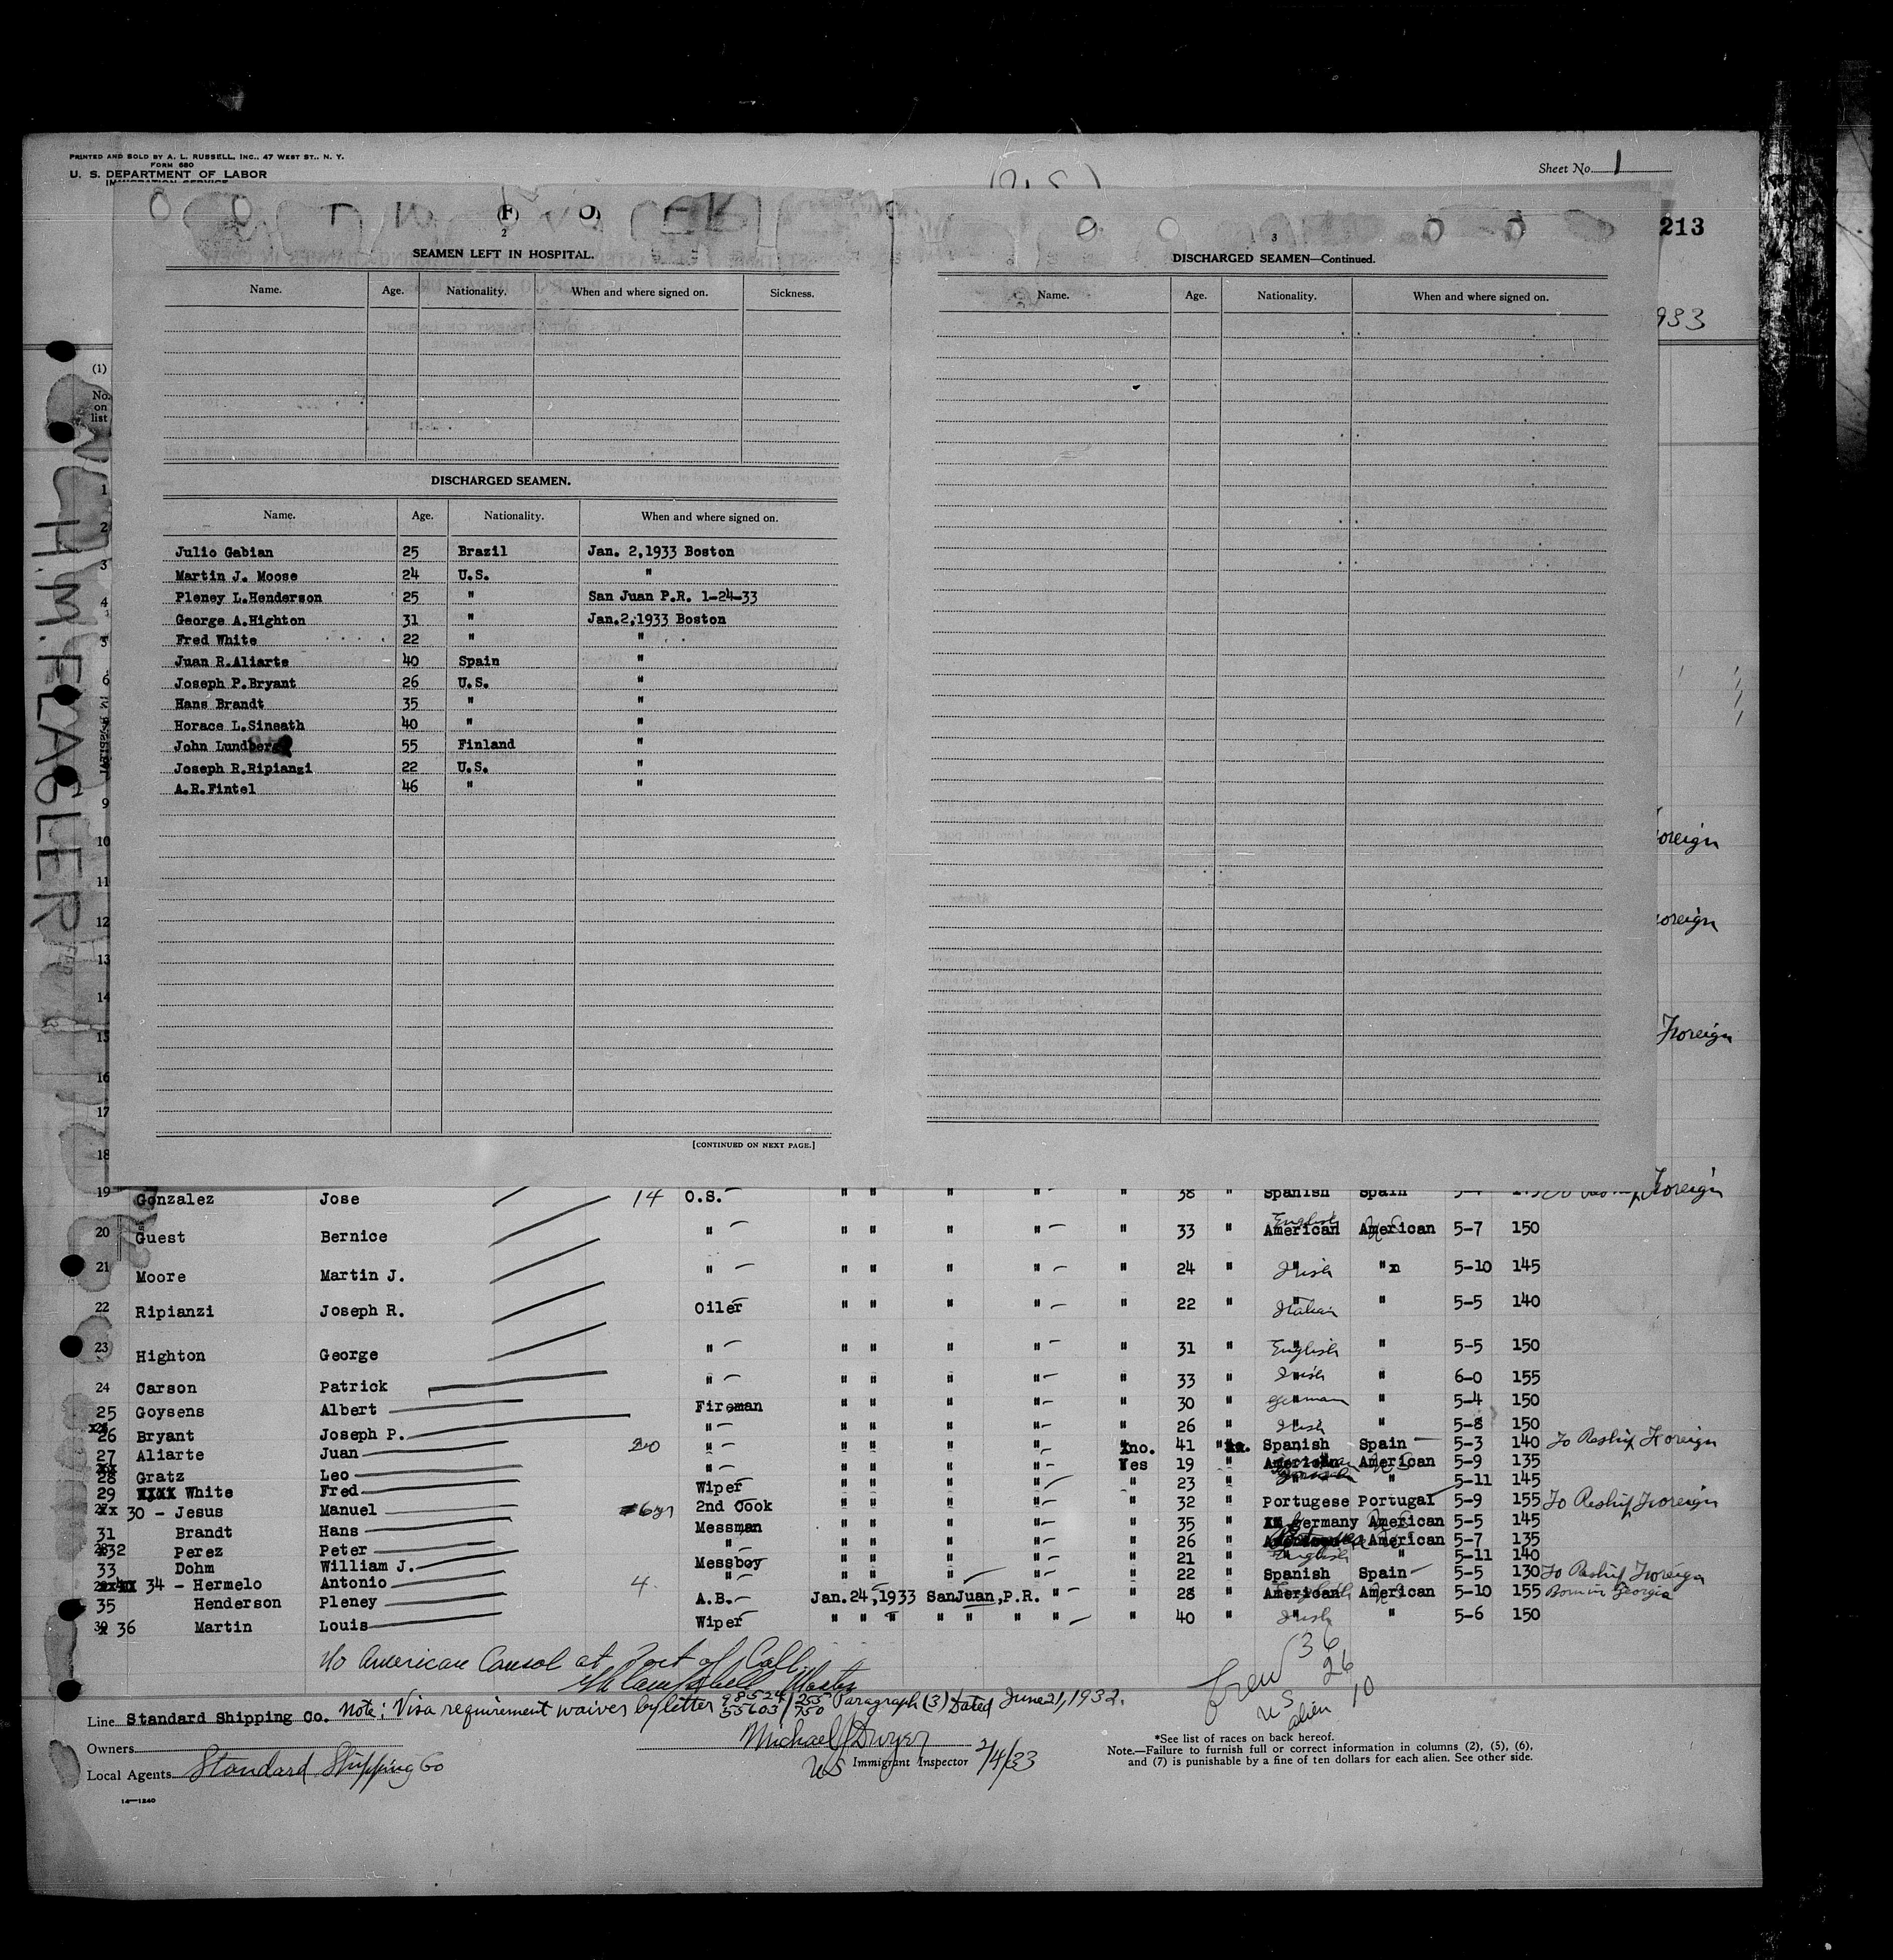 PRINTED AND SOLD BY A. L. RUSSELL, INC., 47 WEST ST., N. Y.
FORM 680
U. S. DEPARTMENT OF LABOR
IMMIGRATION SERVICE
Sheet No. 1
213
933
W. H.M.FLAGLER
(1)
No. on list
2
SEAMEN LEFT IN HOSPITAL.
Name. Age. Nationality. When and where signed on. Sickness.
DISCHARGED SEAMEN.
Name. Age. Nationality. When and where signed on.
Julio Gabian 25 Brazil Jan. 2,1933 Boston
Martin J. Moose 24 U.S. "
Pleney L.Henderson 25 " San Juan P.R. 1-24-33
George A.Highton 31 " Jan.2,1933 Boston
Fred White 22 " "
Juan R.Aliarte 40 Spain "
Joseph P.Bryant 26 U.S. "
Hans Brandt 35 " "
Horace L.Sineath 40 " "
John Lundberg 55 Finland "
Joseph R.Ripianzi 22 U.S. "
A.R.Fintel 46 " "
[CONTINUED ON NEXT PAGE.]
3
DISCHARGED SEAMEN—Continued.
Name. Age. Nationality. When and where signed on.
1
2
3
4
5
6
9
10
11
12
13
14
15
16
17
18
oreign
oreign
Foreign
19 Gonzalez Jose 14 O.S. " " " " " 38 " Spanish Spain Foreign
20 Guest Bernice " " " " " " 33 " American English American 5-7 150
21 Moore Martin J. " " " " " " 24 " Irish " 5-10 145
22 Ripianzi Joseph R. Oiler " " " " " 22 " Italian " 5-5 140
23 Highton George " " " " " " 31 " English " 5-5 150
24 Carson Patrick " " " " " " 33 " Irish " 6-0 155
25 Goysens Albert Fireman " " " " " 30 " German " 5-4 150
26 Bryant Joseph P. " " " " " " 26 " Irish " 5-8 150
27 Aliarte Juan 20 " " " " " no. 41 " Spanish Spain 5-3 140 To Reship Foreign
28 Gratz Leo " " " " " Yes 19 " American American U S 5-9 135
29 White Fred Wiper " " " " " 23 " " 5-11 145
30 - Jesus Manuel 6 yr 2nd Cook " " " " " 32 " Portugese Portugal 5-9 155 To Reship Foreign
31 Brandt Hans Messman " " " " " 35 " Germany American 5-5 145
32 Perez Peter " " " " " " 26 " American 5-7 135
33 Dohm William J. Messboy " " " " " 21 " English " 5-11 140
34 - Hermelo Antonio 4 " " " " " " 22 " Spanish Spain 5-5 130 To Reship Foreign
35 Henderson Pleney A.B. Jan.24,1933 SanJuan,P.R. " " 28 " American American U S 5-10 155 Born in Georgia
36 Martin Louis Wiper " " " " " " " 40 " Irish " 5-6 150
No American Consul at Port of Call.
Campbell Master
Crew 36
U S 26
alien 10
Note: Visa requirement waiver by letter 98524/255 55603/750 Paragraph (3) Dated June 21, 1932.
Line Standard Shipping Co.
Michael J Dwyer
Owners
Local Agents Standard Shipping Co
US Immigrant Inspector 2/4/33
*See list of races on back hereof.
Note.—Failure to furnish full or correct information in columns (2), (5), (6),
and (7) is punishable by a fine of ten dollars for each alien. See other side.
14—1240